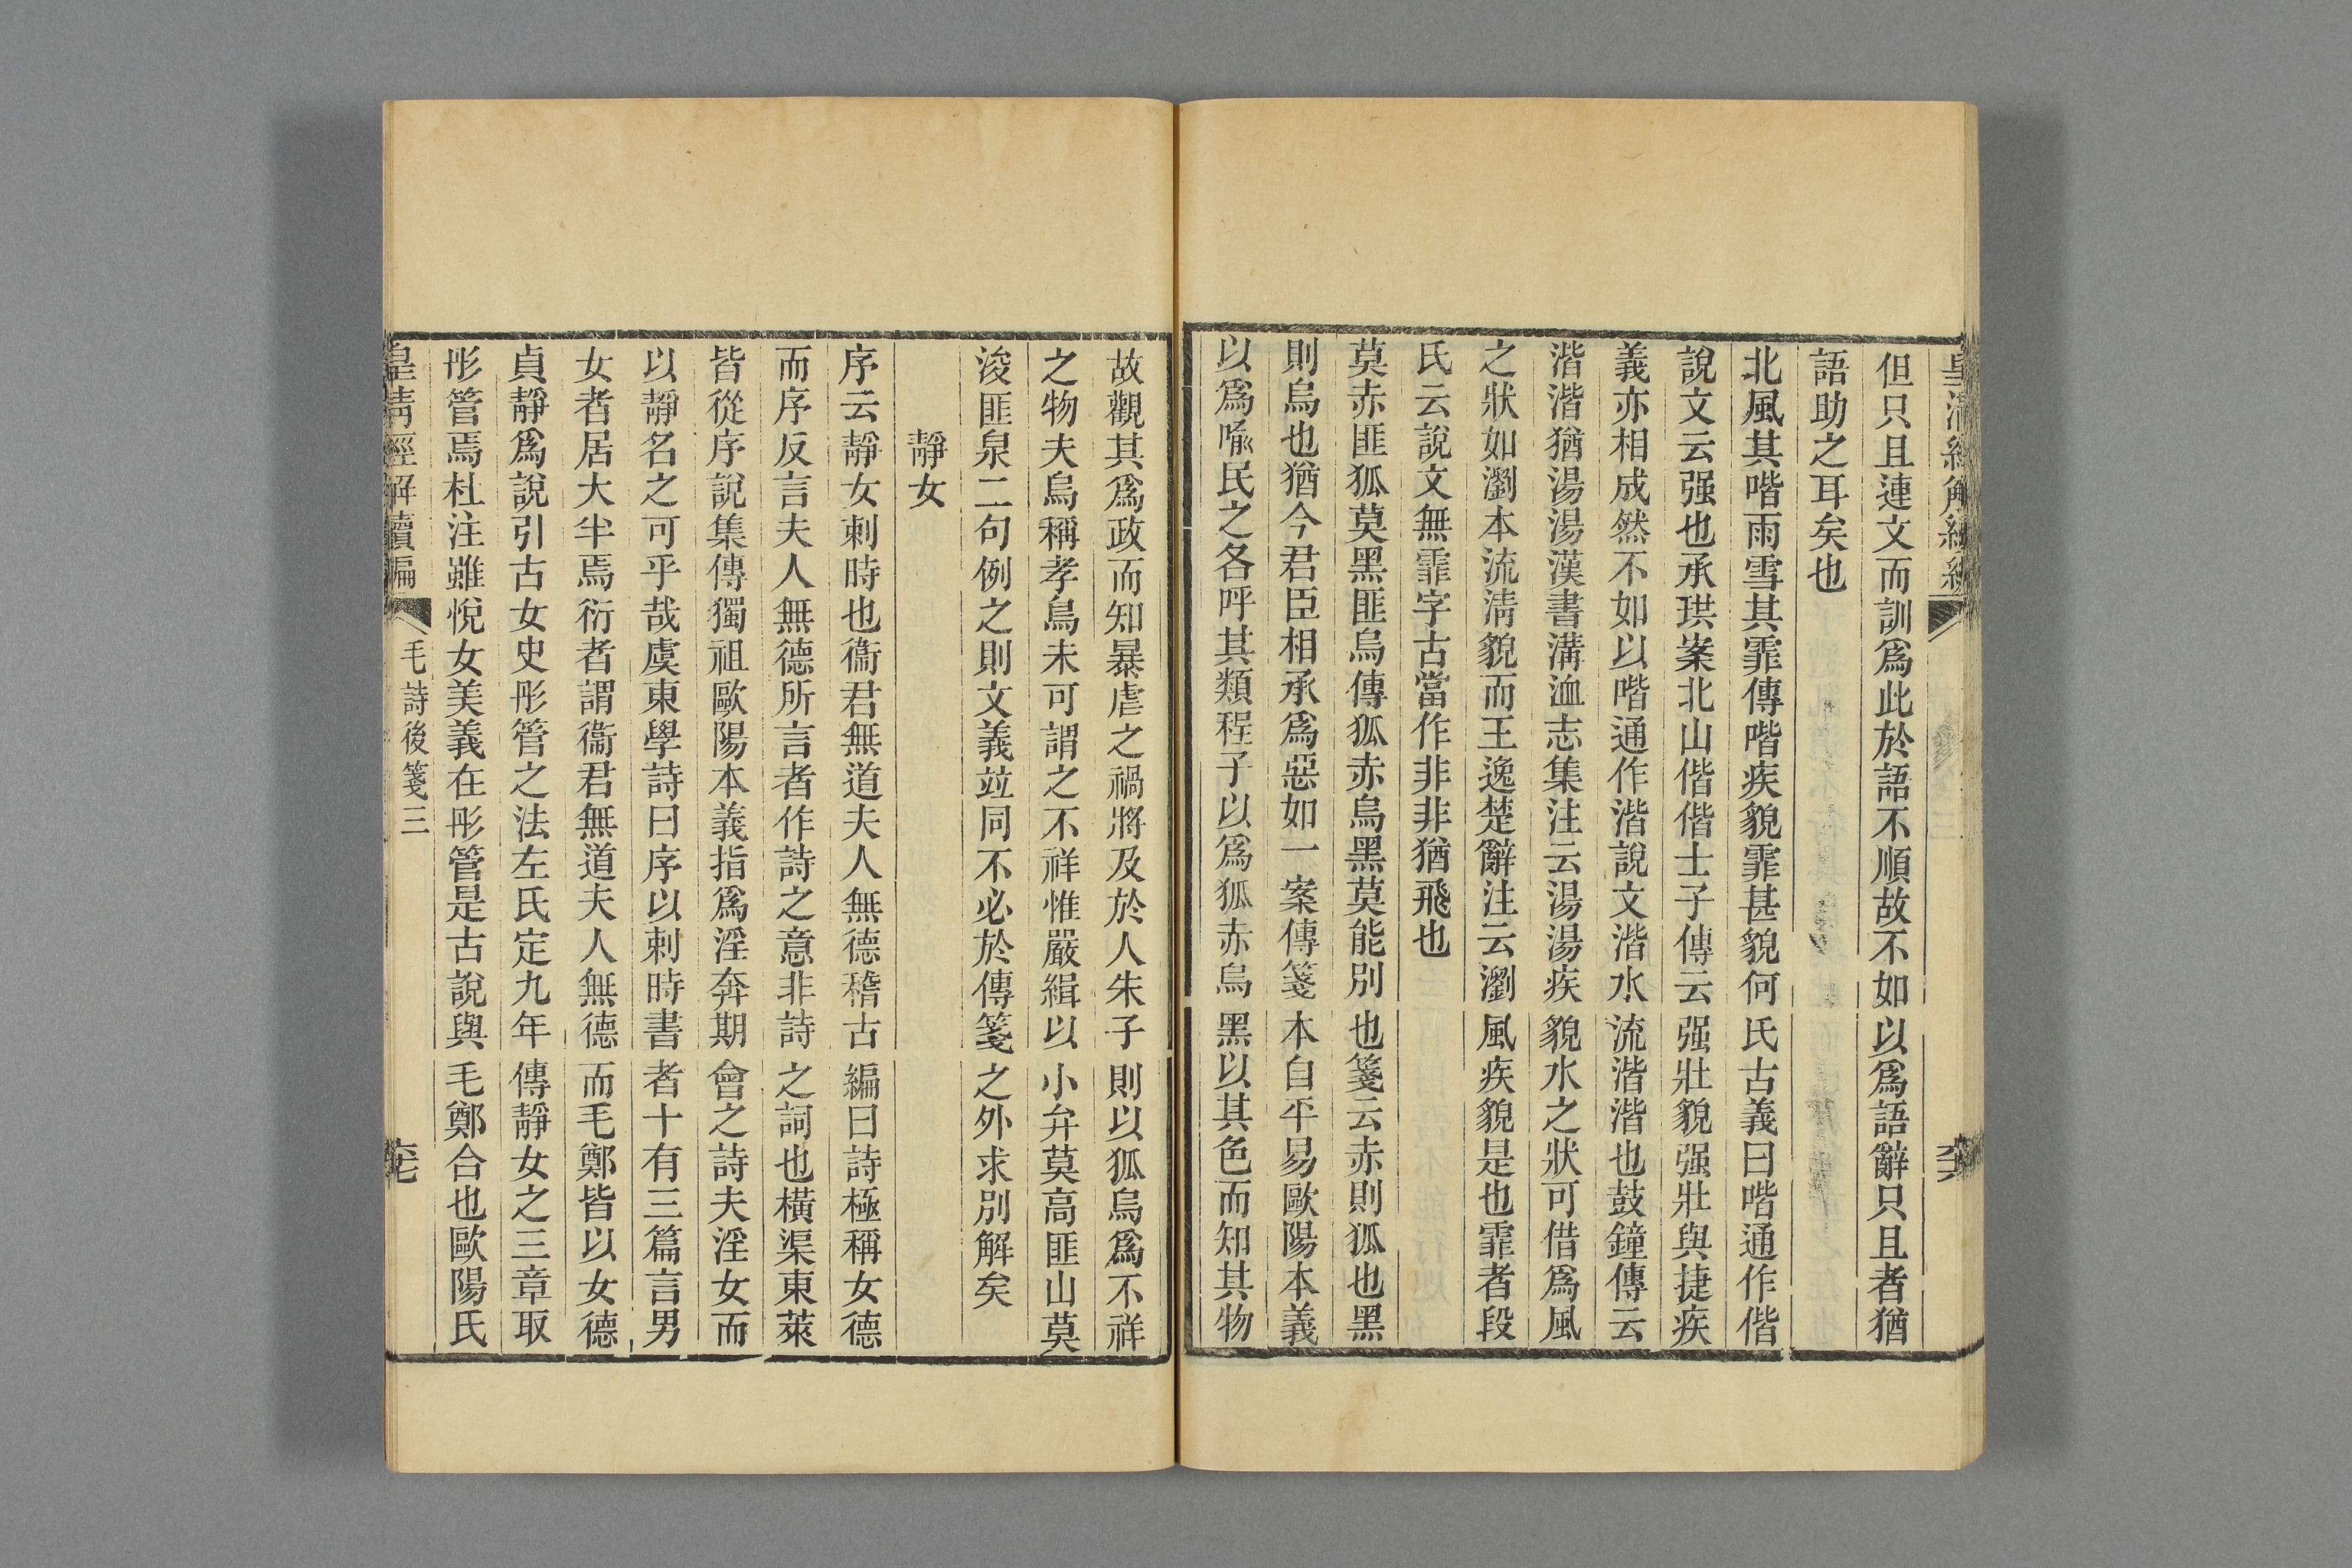 但只且連文而訓爲此於語不順故不如以爲語辭只且者猶
語助之耳矣也
北風其喈雨雪其霏傳喈疾貌霏甚貌何氏古義曰喈通作偕
說文云强也承珙案北山偕偕士子傳云强壯貌强壯與捷疾
義亦相成然不如以喈通作湝說文湝水流湝湝也鼓鐘傳云
湝湝猶湯湯漢書溝洫志集注云湯湯疾貌水之狀可借爲風
之狀如瀏本流淸貌而王逸楚辭注云瀏風疾貌是也霏者段
氏云說文無霏字古當作非非猶飛也
莫赤匪狐莫黑匪烏傳狐赤烏黑莫能別也箋云赤則狐也黑
則烏也猶今君臣相承爲惡如一案傳箋本自平易歐陽本義
以爲喩民之各呼其類程子以爲狐赤烏黑以其色而知其物
故觀其爲政而知暴虐之禍將及於人朱子則以狐烏爲不祥
之物夫烏稱孝鳥未可謂之不祥惟嚴緝以小弁莫高匪山莫
浚匪泉二句例之則文義竝同不必於傳箋之外求別解矣
靜女
序云靜女刺時也衞君無道夫人無德稽古編曰詩極稱女德
而序反言夫人無德所言者作詩之意非詩之詞也橫渠東萊
皆從序說集傳獨祖歐陽本義指爲淫奔期會之詩夫淫女而
以靜名之可乎哉虞東學詩曰序以刺時書者十有三篇言男
女者居大半焉衍者謂衞君無道夫人無德而毛鄭皆以女德
貞靜爲說引古女史彤管之法左氏定九年傳靜女之三章取
彤管焉杜注雖悅女美義在彤管是古說與毛鄭合也歐陽氏
皇淸經解續編 毛詩後箋三